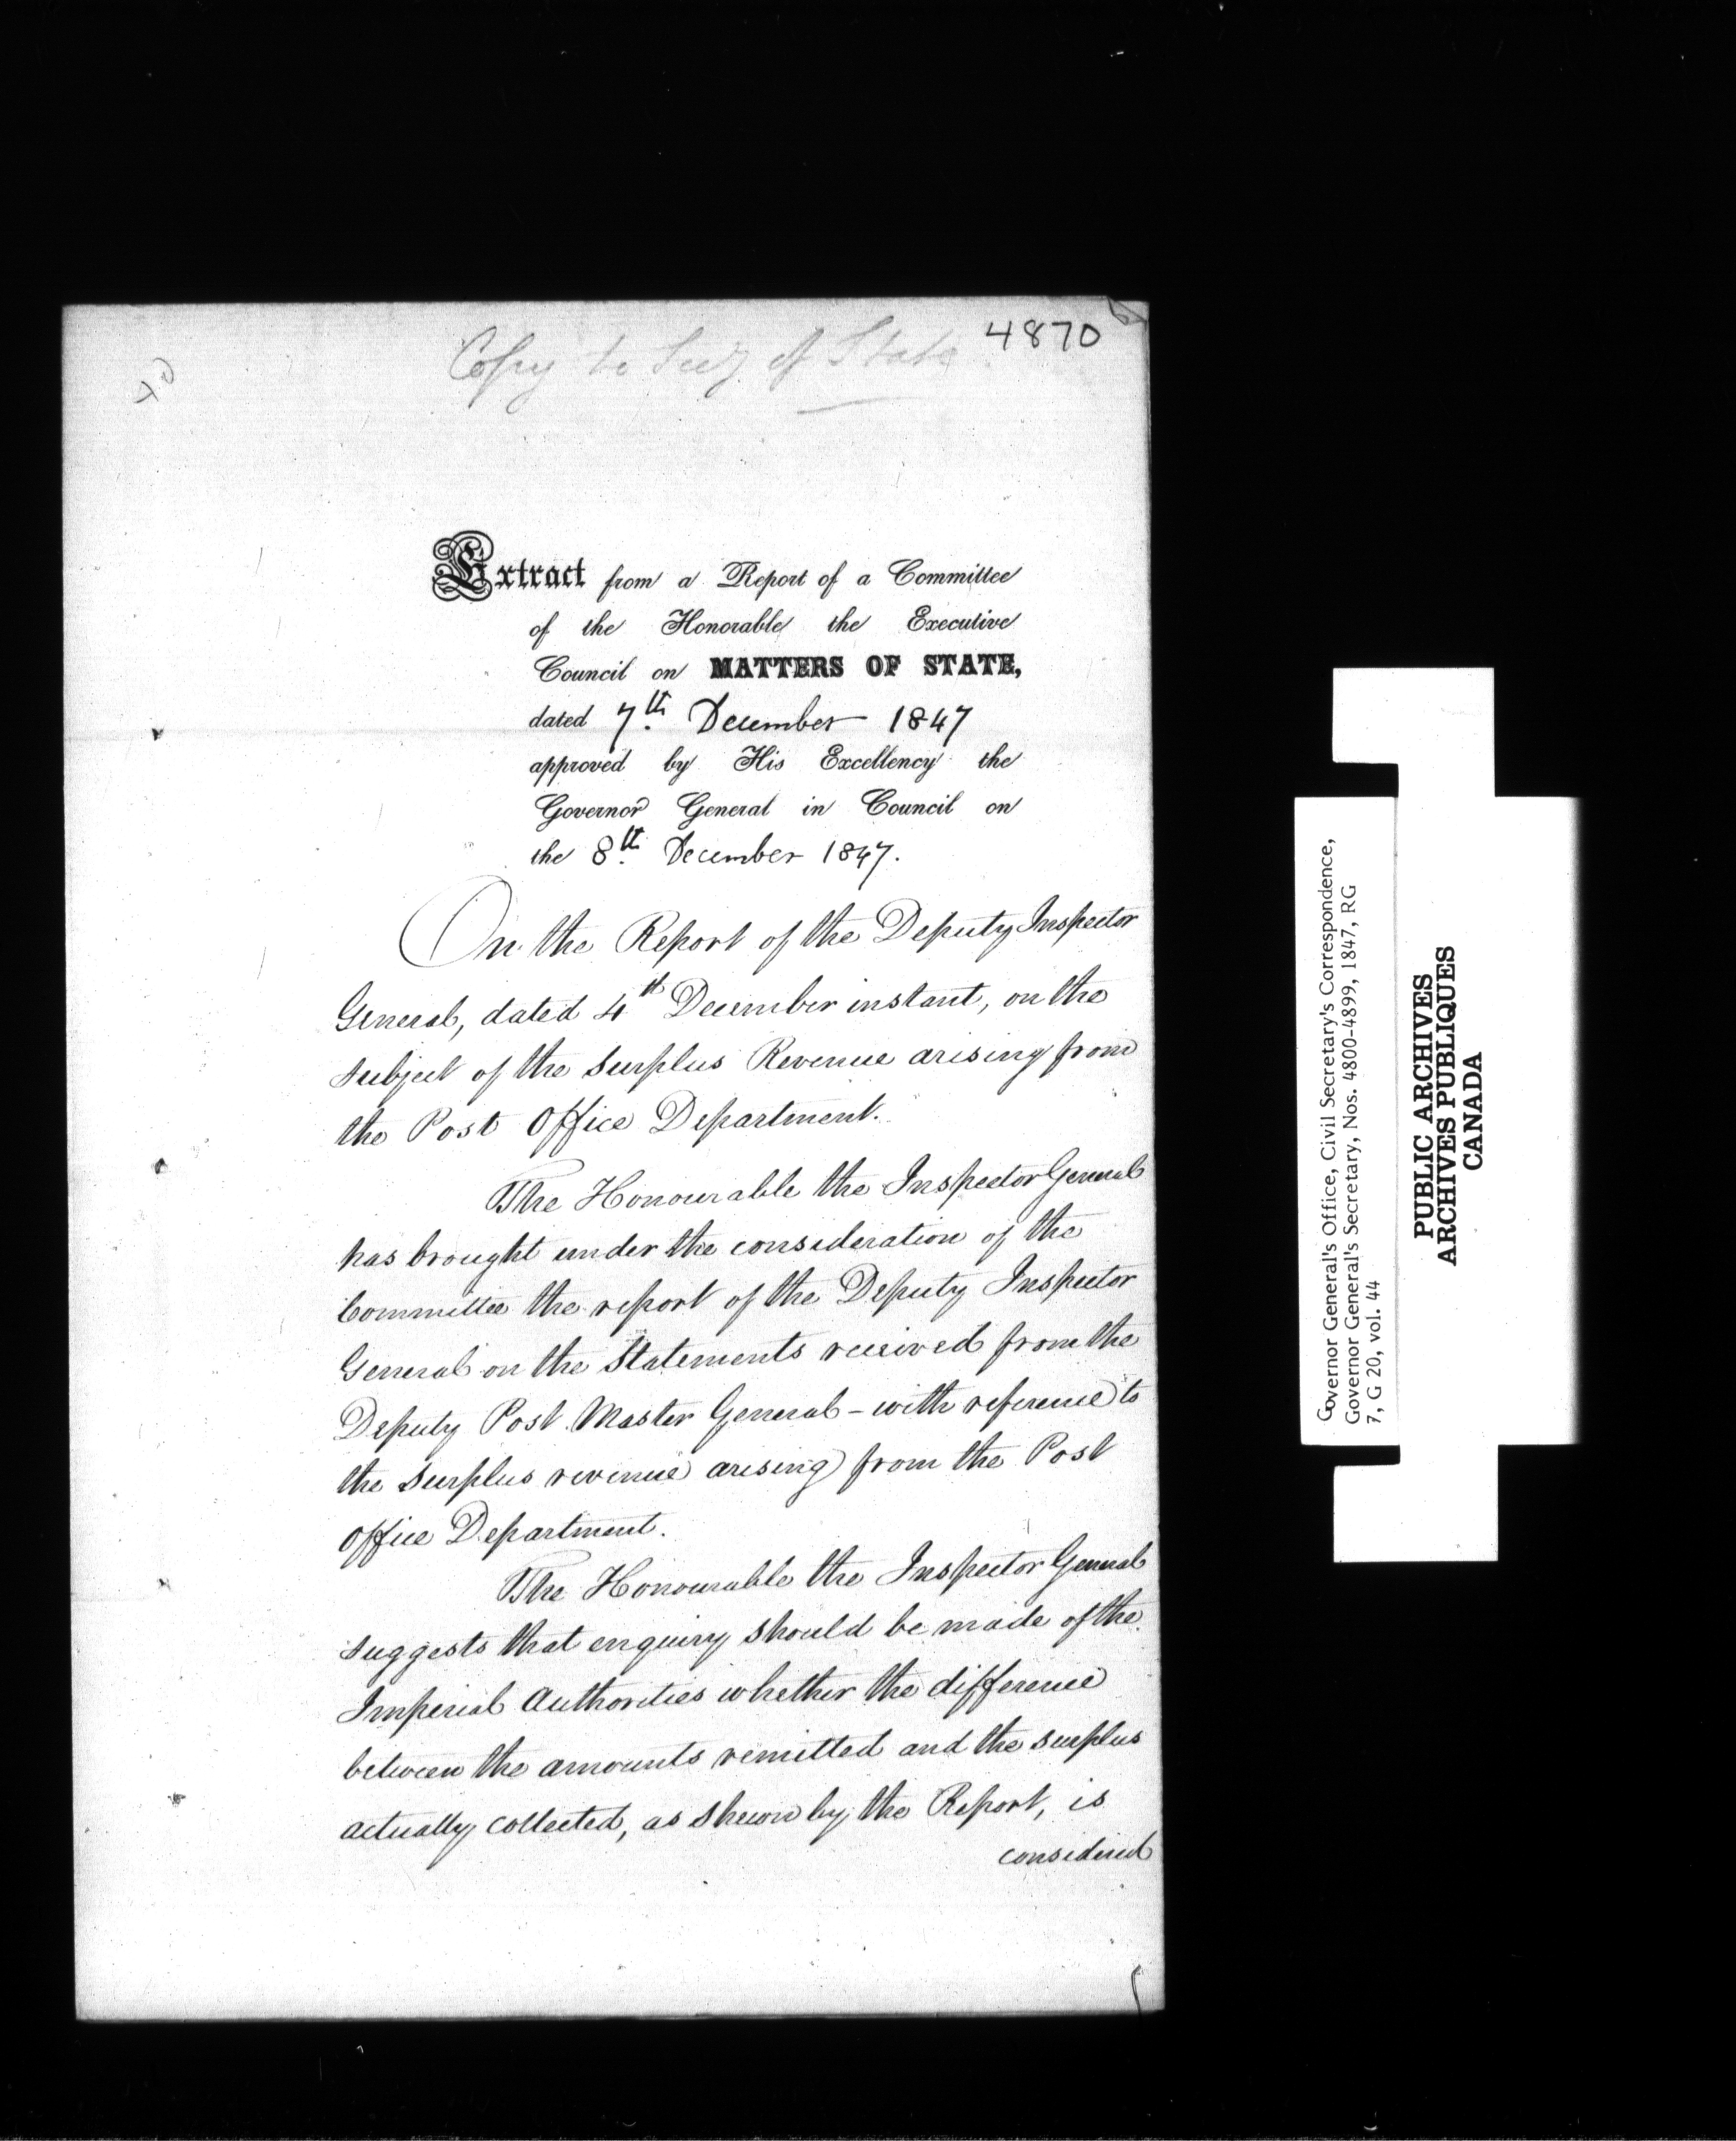 4870
Copy to Secy of State
Extract from a Report of a Committee
of the Honorable the Executive
Council on MATTERS OF STATE,
dated 7th December 1847
approved by His Excellency the
Governor General in Council on
the 8th December 1847.
On the Report of the Deputy Inspector
General, dated 4th December instant, on the
subject of the Surplus Revenue arising from
the Post Office Department.
The Honourable the Inspector General
has brought under the consideration of the
Committee the report of the Deputy Inspector
General on the Statements received from the
Deputy Post Master General – with reference to
the surplus revenue arising from the Post
Office Department.
The Honourable the Inspector General
suggests that enquiry should be made of the
Imperial Authorities whether the difference
between the amounts remitted and the surplus
actually collected, as shewn by the Report, is
considered
Governor General's Office, Civil Secretary's Correspondence,
Governor General's Secretary, Nos. 4800-4899, 1847, RG
7, G 20, vol. 44
PUBLIC ARCHIVES
ARCHIVES PUBLIQUES
CANADA